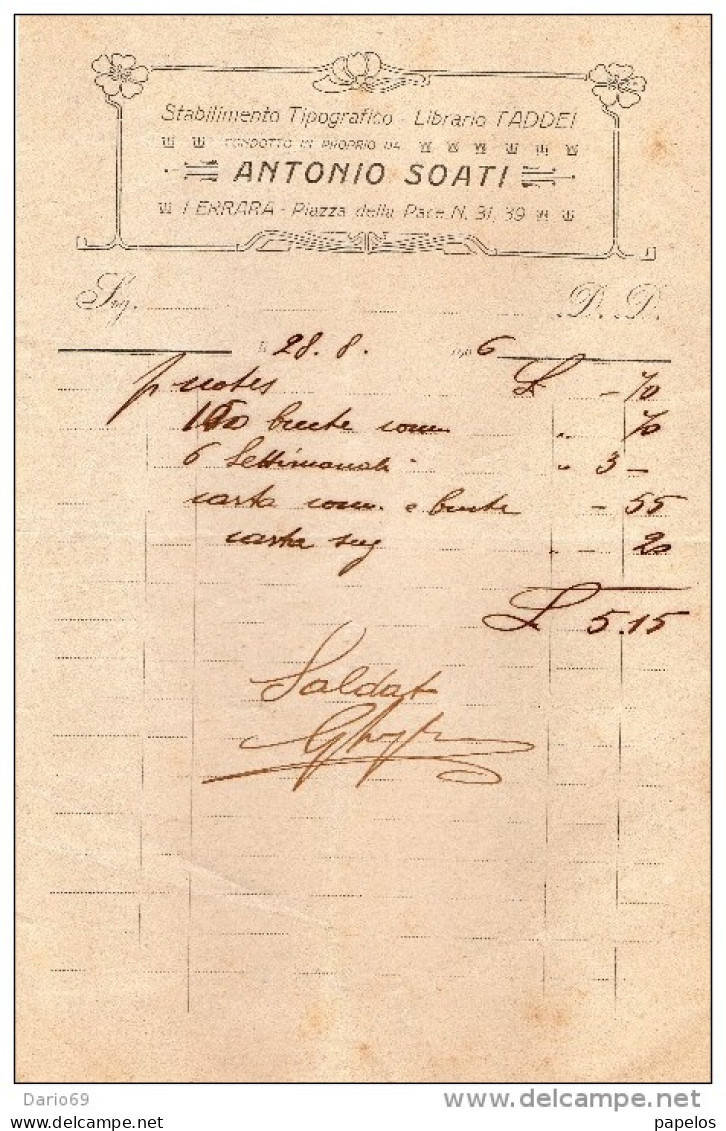 Stabilimento Tipografico - Librario TADDEI
CONDOTTO IN PROPRIO DA
ANTONIO SOATI
FERRARA - Piazza della Pace N. 31, 39
Sig. D. D.
li 28. 8. 1906
p notes £ - 70
150 buste com. „ 70
6 Settimanali „ 3 -
carta com. e buste - 55
carta sug „ - 20
£ 5.15
Saldat
Dario69
delcampe.net
papelos